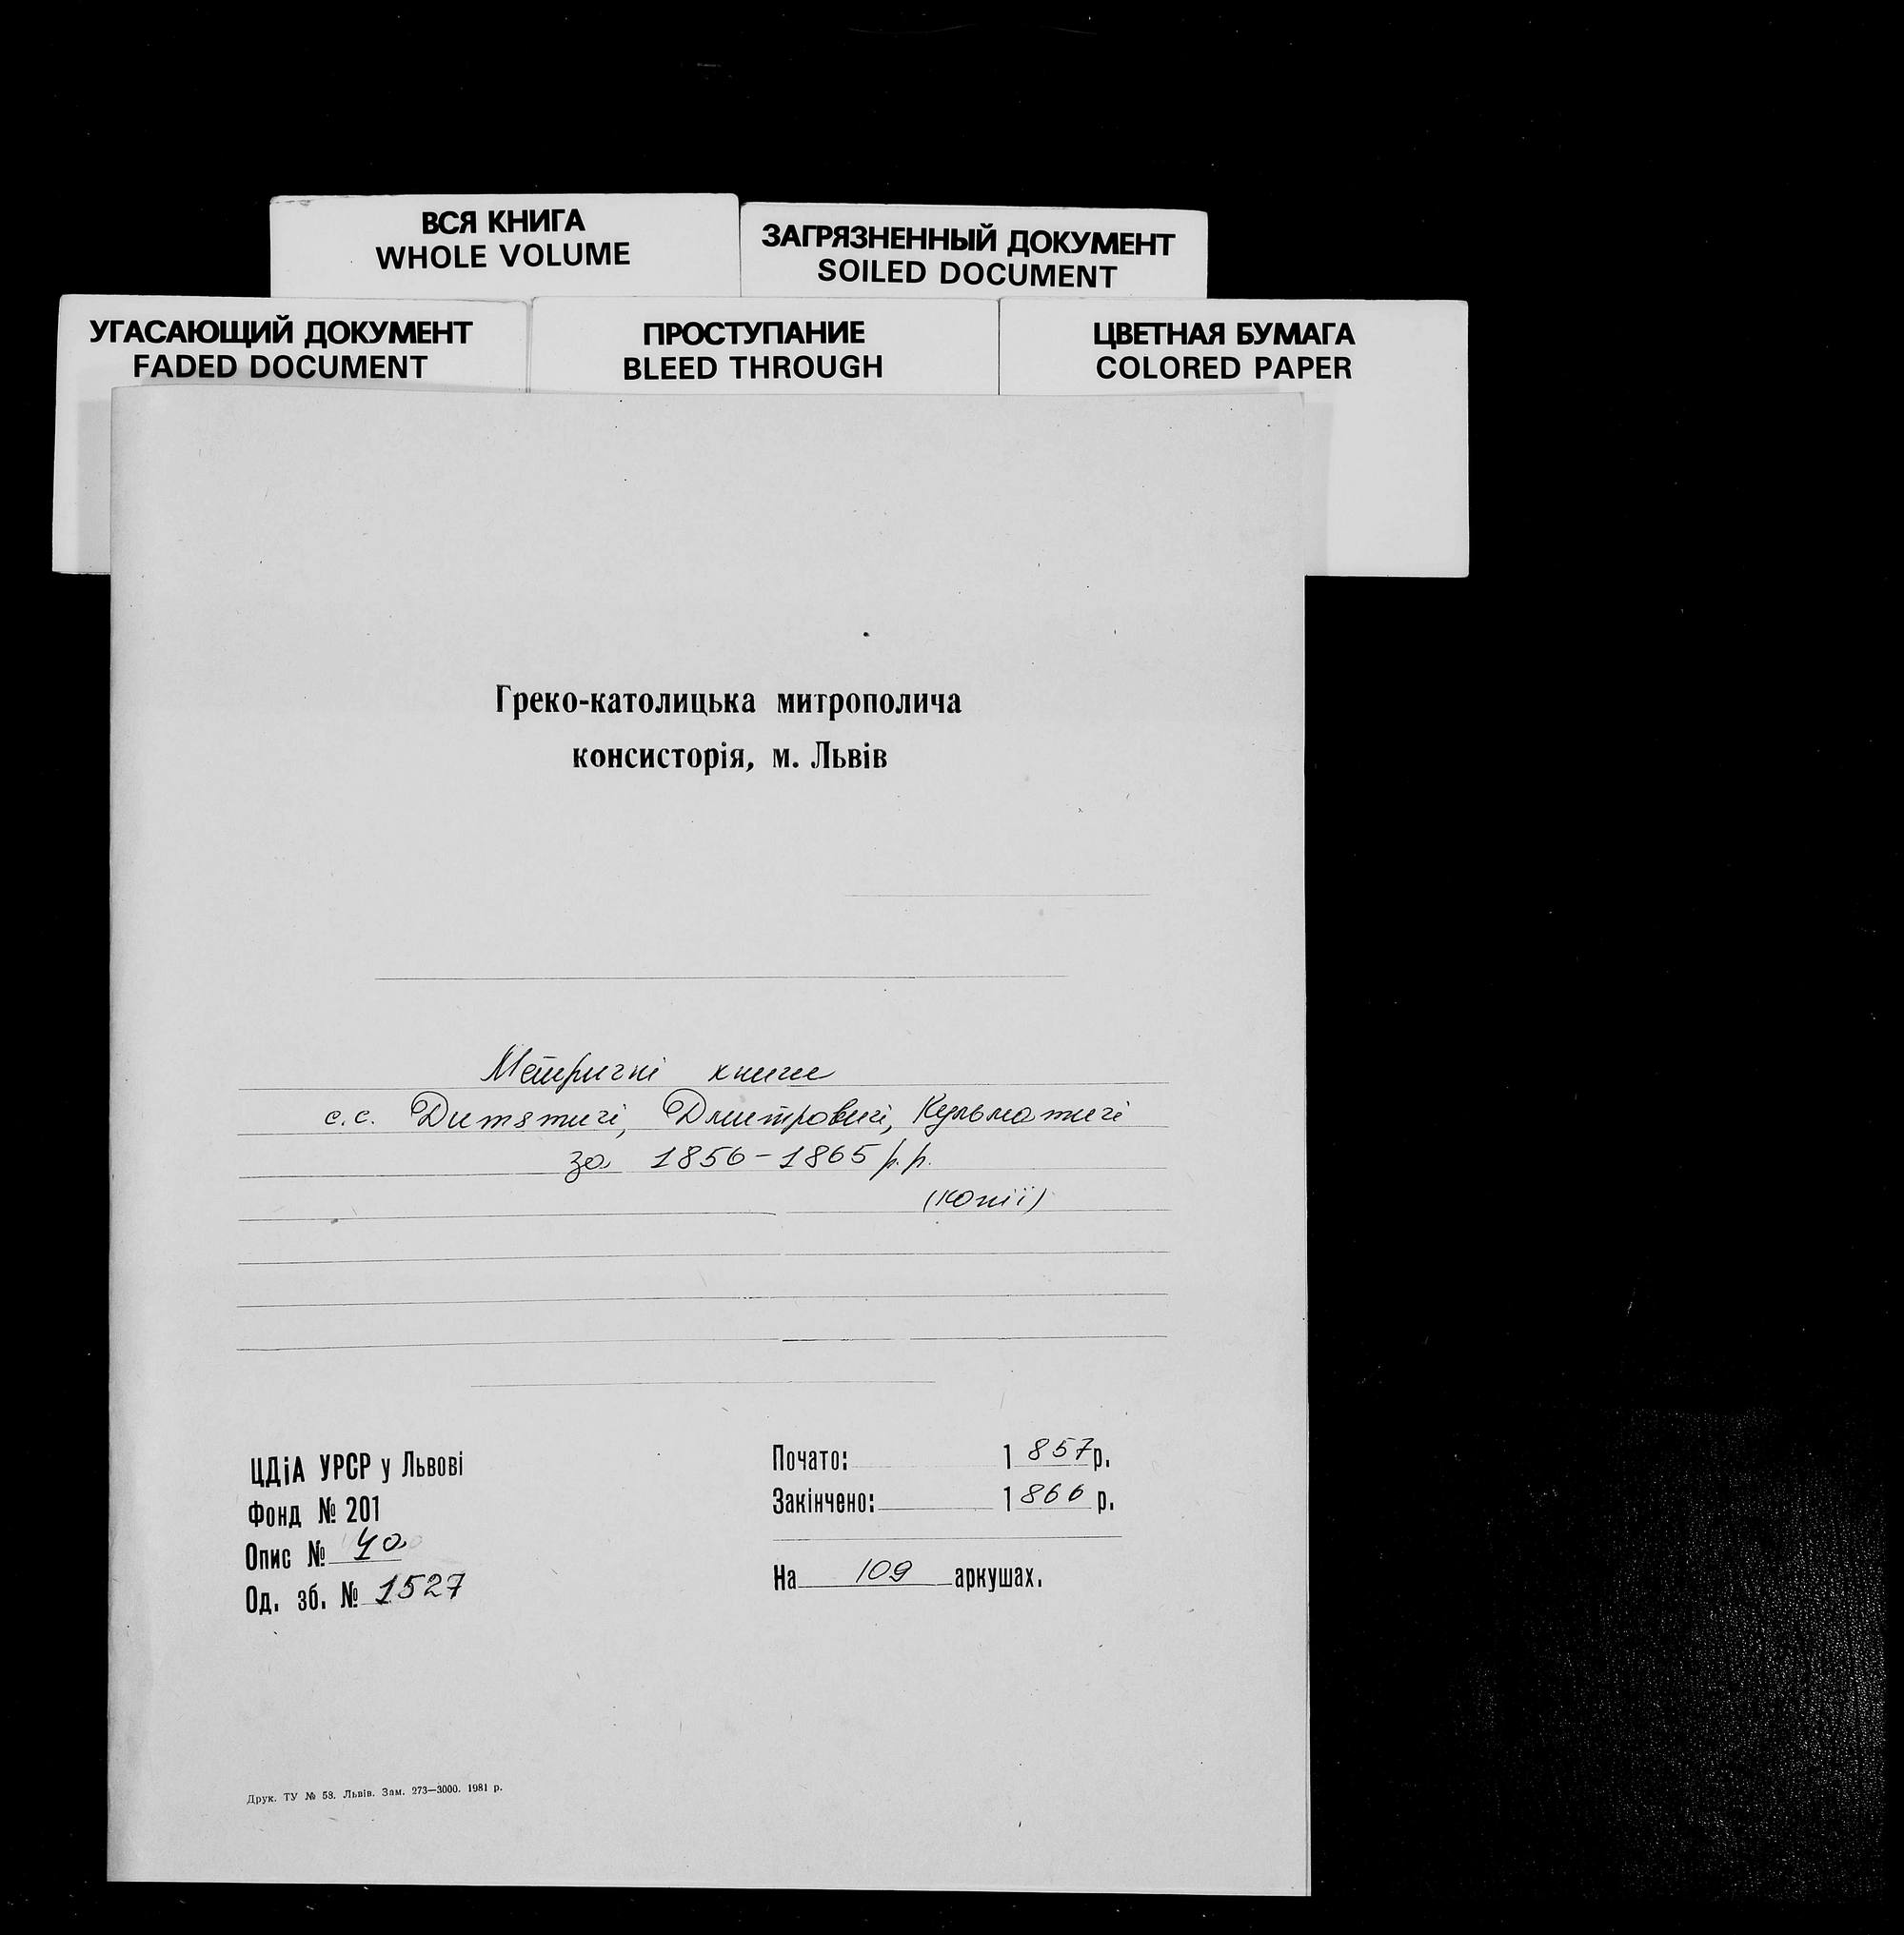 ВСЯ КНИГА
WHOLE VOLUME
ЗАГРЯЗНЕННЫЙ ДОКУМЕНТ
SOILED DOCUMENT
УГАСАЮЩИЙ ДОКУМЕНТ
FADED DOCUMENT
ПРОСТУПАНИЕ
BLEED THROUGH
ЦВЕТНАЯ БУМАГА
COLORED PAPER
Греко-католицька митрополича
консисторія, м. Львів
Метричні книги
с.с. Дитятичі, Дмитровичі, Кульматичі
за 1856-1865 р.р.
(копії)
ЦДіА УРСР у Львові
Фонд № 201
Опис № 4а
Од. зб. № 1527
Почато: 1857 р.
Закінчено: 1866 р.
На 109 аркушах.
Друк. ТУ № 58. Львів. Зам. 273—3000. 1981 р.